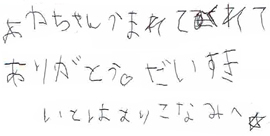 よねちゃんうまれてくれて
ありがとう♡だいすき
いとはまりこなみへ☆